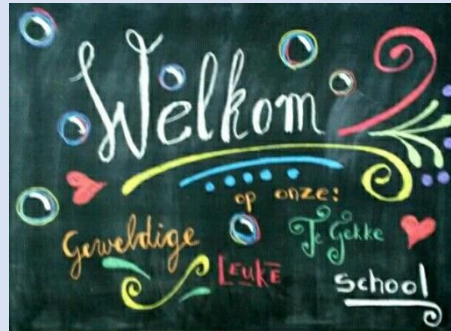 Welkom
op onze:
Geweldige
Leuke
Te Gekke
School